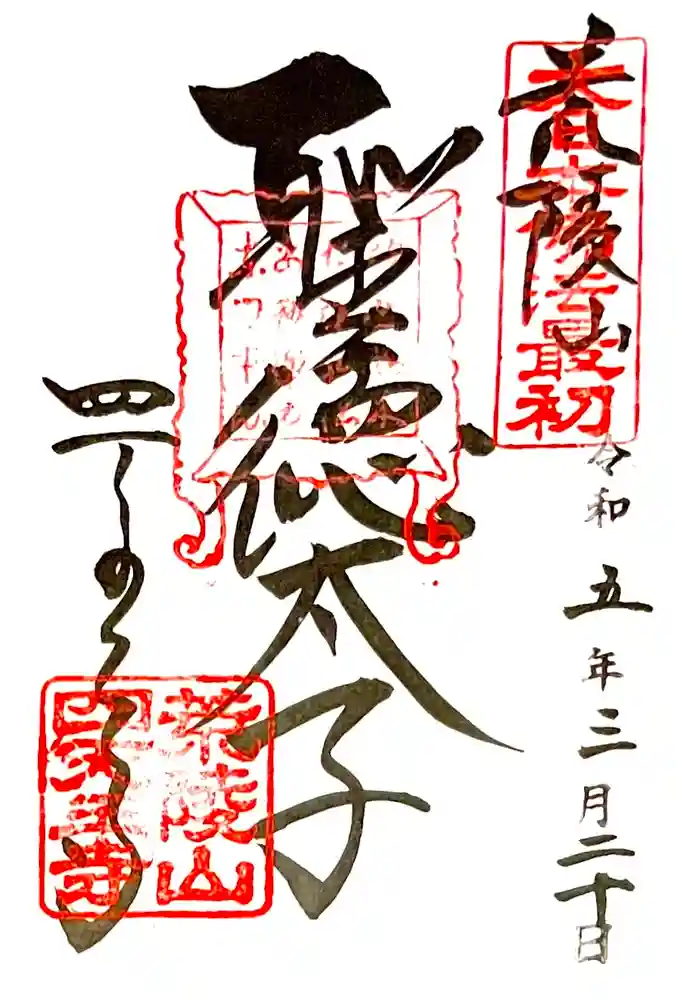 荒陵山
大日本佛法最初
令和五年三月二十日
聖徳太子
四天王寺
荒陵山
四天王寺